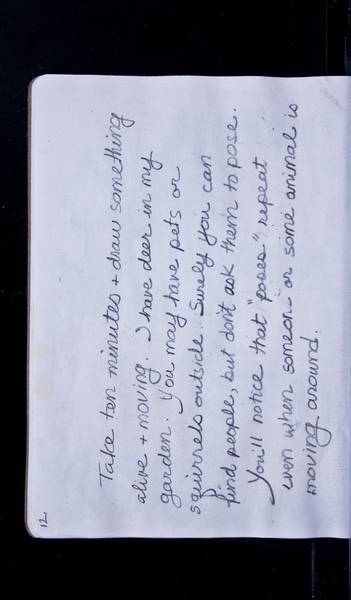 12.
Take ten minutes + draw something
alive + moving. I have deer in my
garden. You may have pets or
squirrels outside. Surely you can
find people, but don't ask them to pose.
You'll notice that "poses" repeat
even when someone or some animal is
moving around.